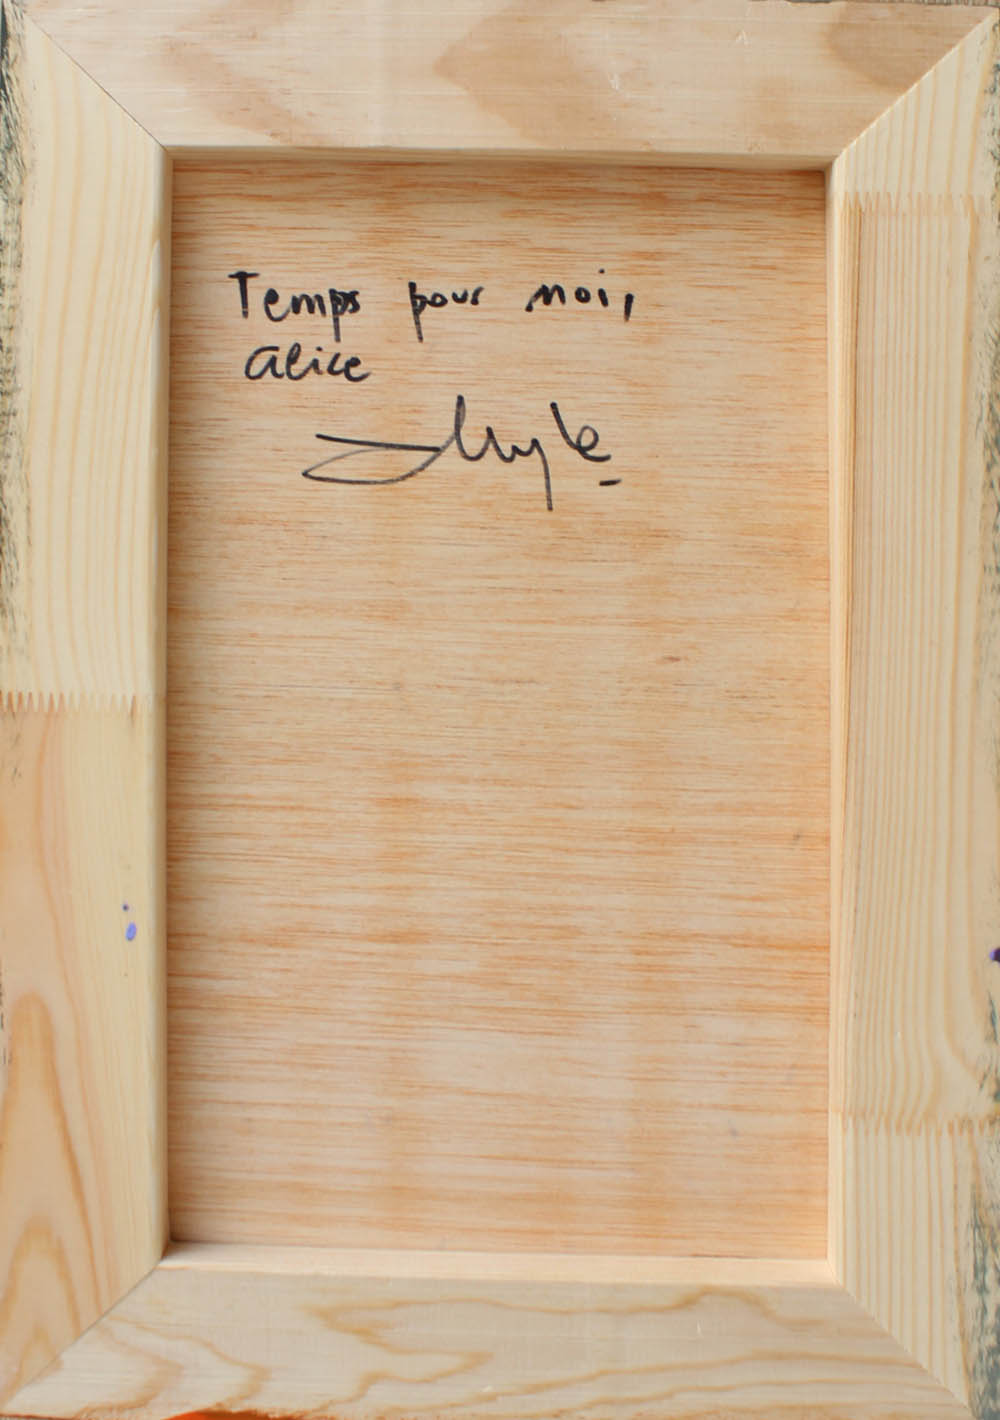 Temps pour moi,
Alice